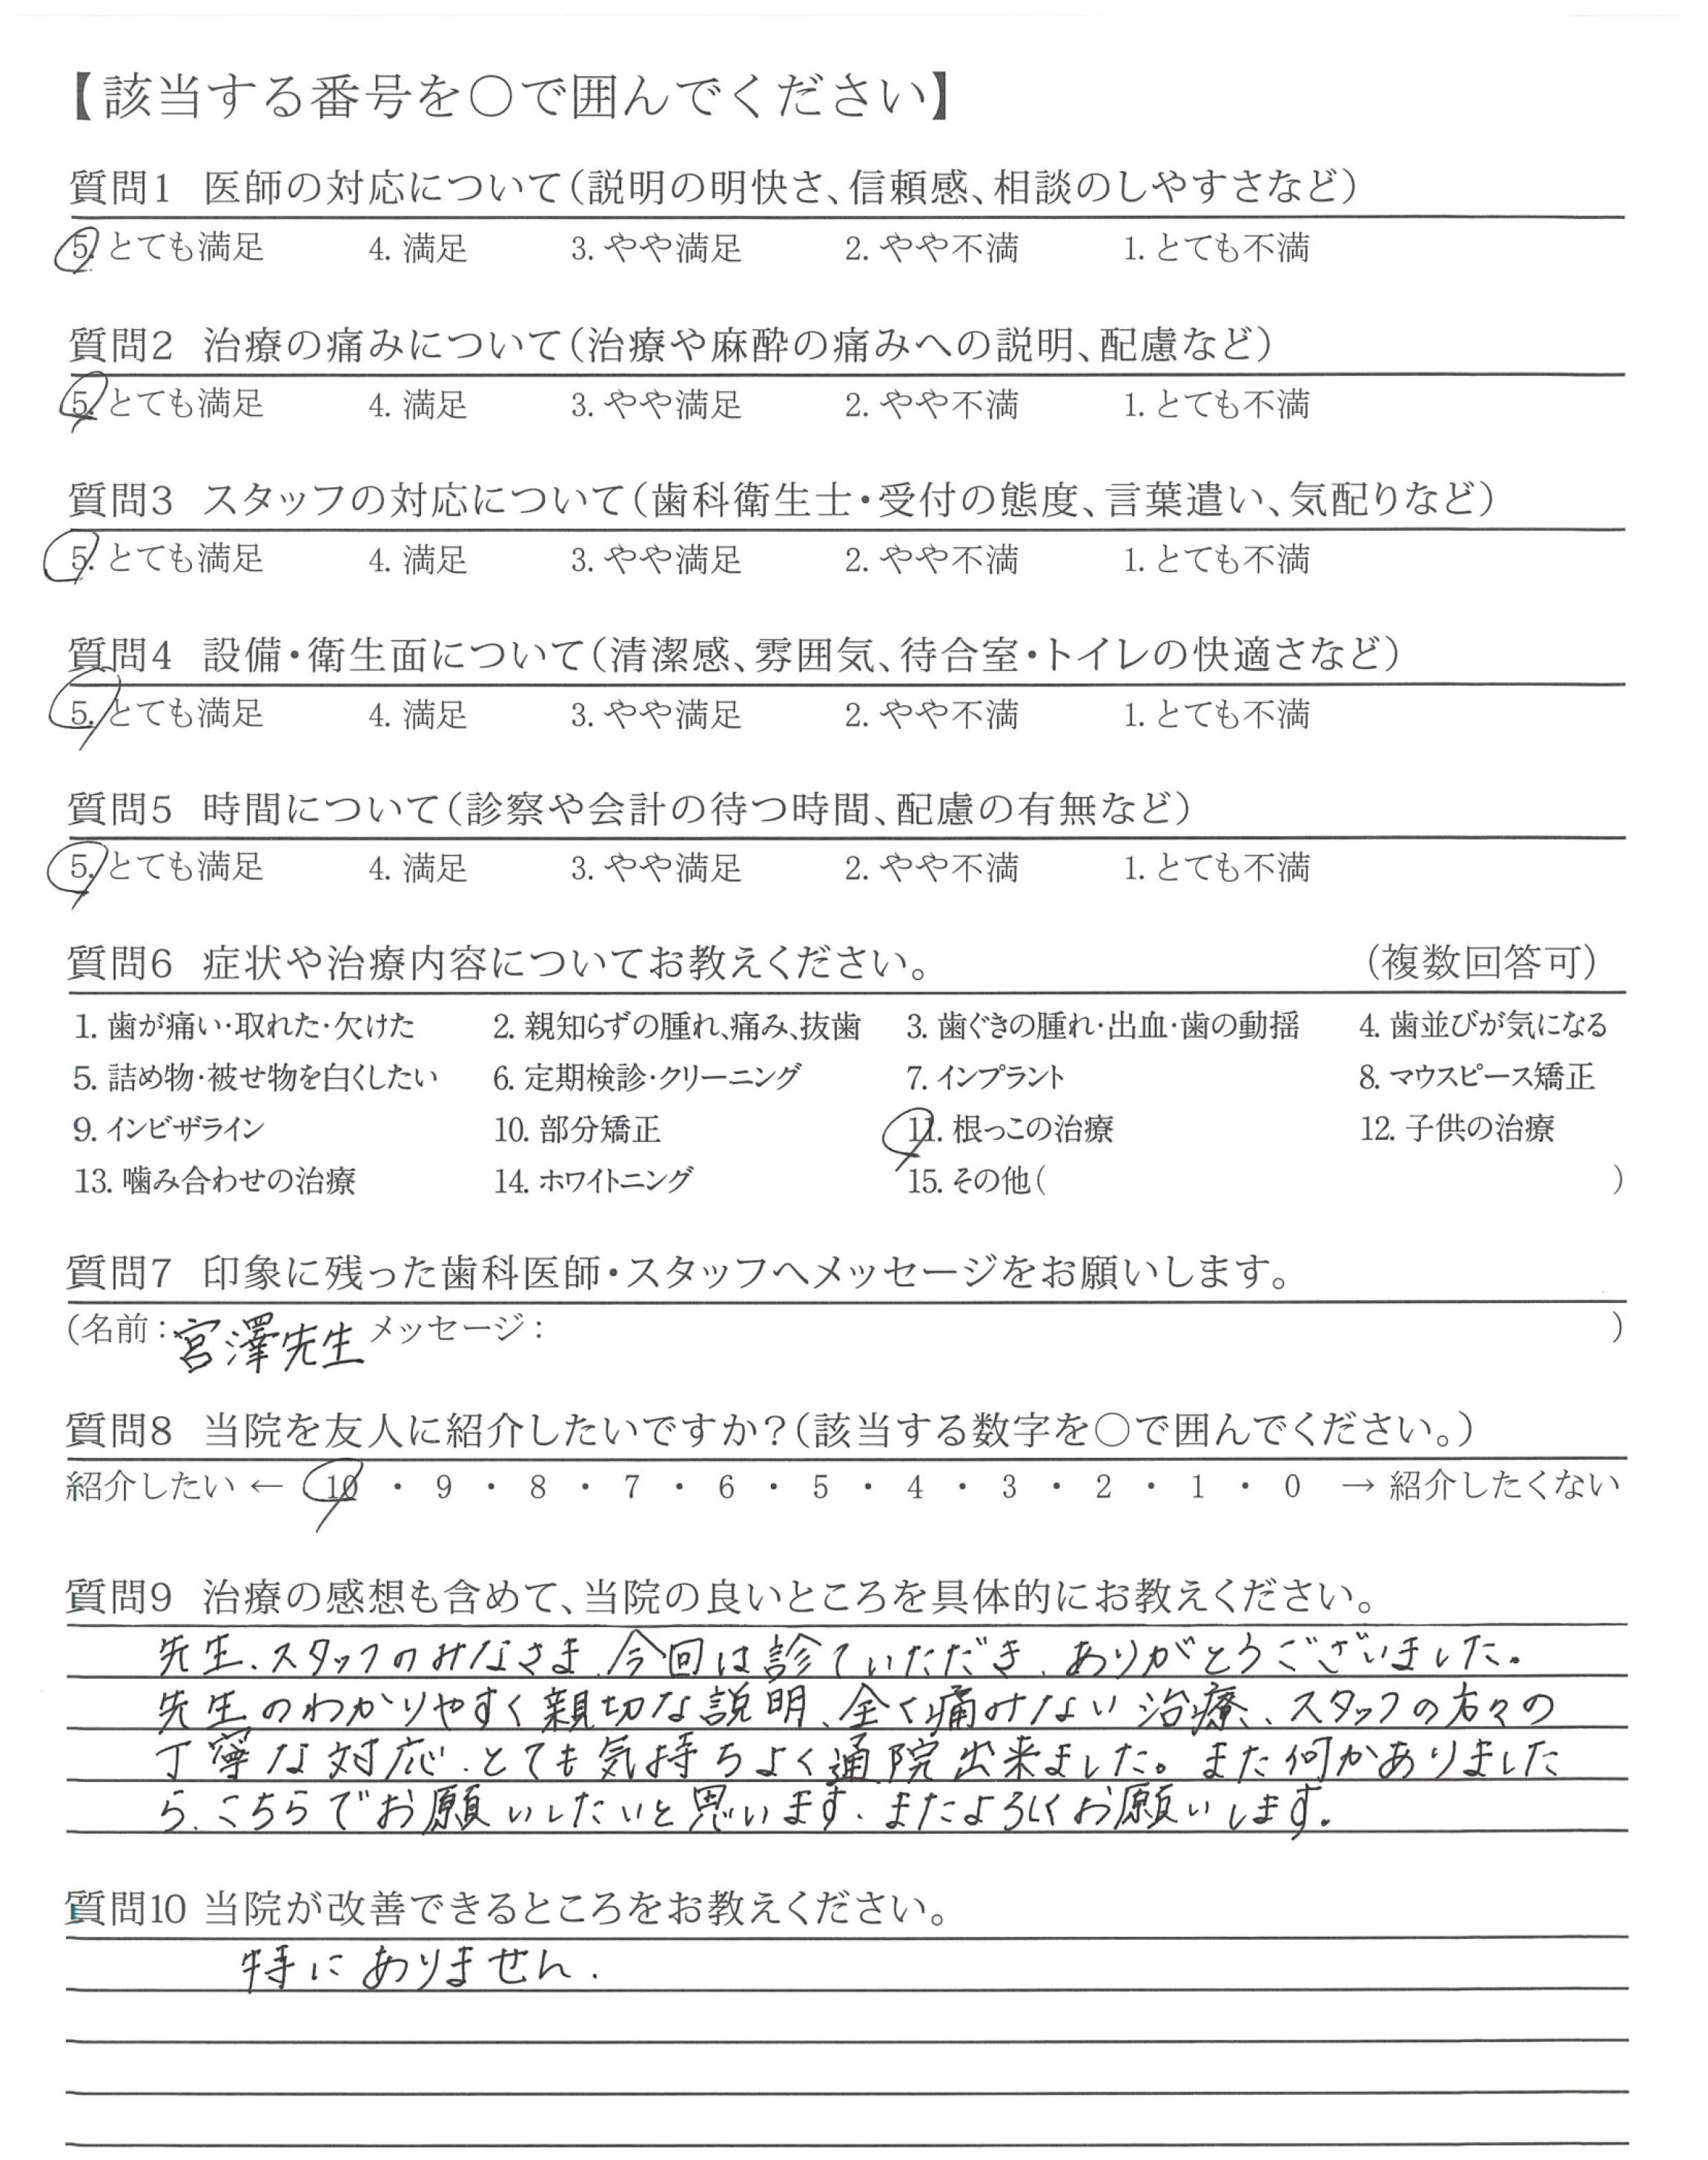 【該当する番号を○で囲んでください】
質問1 医師の対応について（説明の明快さ、信頼感、相談のしやすさなど）
5. とても満足 4. 満足 3. やや満足 2. やや不満 1. とても不満
質問2 治療の痛みについて（治療や麻酔の痛みへの説明、配慮など）
5. とても満足 4. 満足 3. やや満足 2. やや不満 1. とても不満
質問3 スタッフの対応について（歯科衛生士・受付の態度、言葉遣い、気配りなど）
5. とても満足 4. 満足 3. やや満足 2. やや不満 1. とても不満
質問4 設備・衛生面について（清潔感、雰囲気、待合室・トイレの快適さなど）
5. とても満足 4. 満足 3. やや満足 2. やや不満 1. とても不満
質問5 時間について（診察や会計の待つ時間、配慮の有無など）
5. とても満足 4. 満足 3. やや満足 2. やや不満 1. とても不満
質問6 症状や治療内容についてお教えください。 （複数回答可）
1. 歯が痛い・取れた・欠けた 2. 親知らずの腫れ、痛み、抜歯 3. 歯ぐきの腫れ・出血・歯の動揺 4. 歯並びが気になる
5. 詰め物・被せ物を白くしたい 6. 定期検診・クリーニング 7. インプラント 8. マウスピース矯正
9. インビザライン 10. 部分矯正 11. 根っこの治療 12. 子供の治療
13. 噛み合わせの治療 14. ホワイトニング 15. その他（ ）
質問7 印象に残った歯科医師・スタッフへメッセージをお願いします。
（名前：宮澤先生 メッセージ： ）
質問8 当院を友人に紹介したいですか？（該当する数字を○で囲んでください。）
紹介したい ← 10 ・ 9 ・ 8 ・ 7 ・ 6 ・ 5 ・ 4 ・ 3 ・ 2 ・ 1 ・ 0 → 紹介したくない
質問9 治療の感想も含めて、当院の良いところを具体的にお教えください。
先生、スタッフのみなさま、今回は診ていただき、ありがとうございました。
先生のわかりやすく親切な説明、全く痛みない治療、スタッフの方々の
丁寧な対応、とても気持ちよく通院出来ました。また何かありました
ら、こちらでお願いしたいと思います。またよろしくお願いします。
質問10 当院が改善できるところをお教えください。
特にありません.